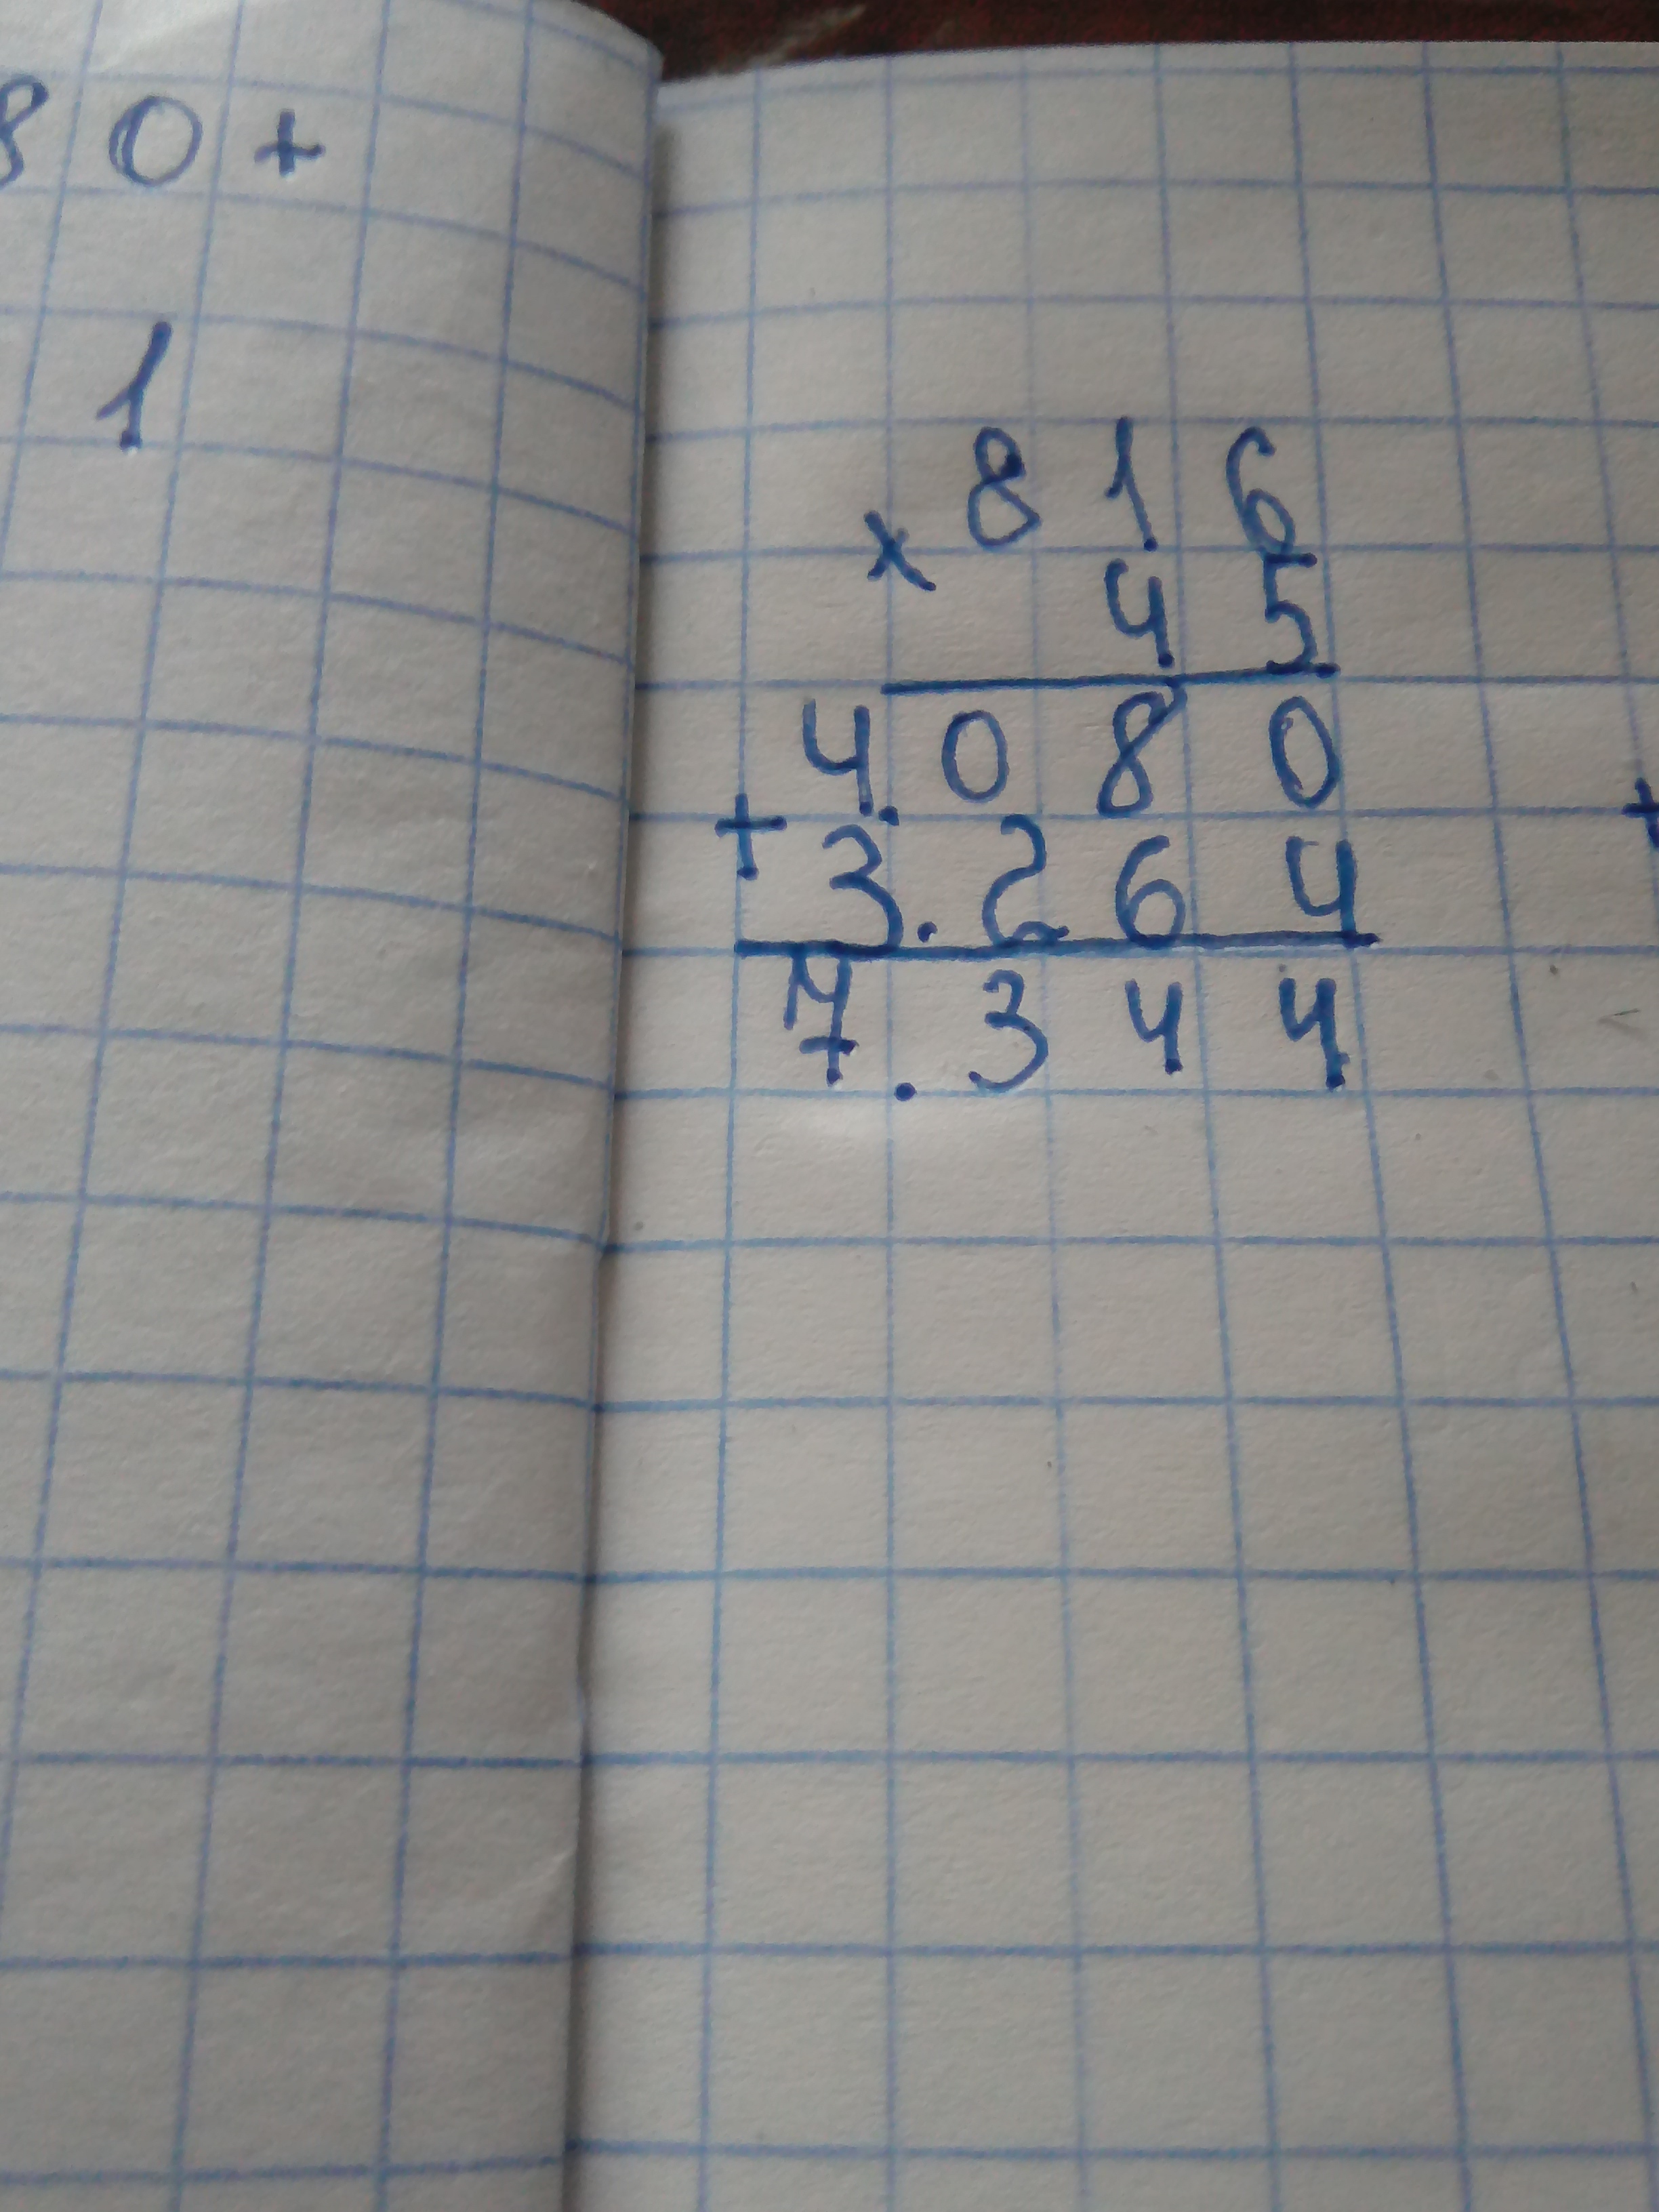 80+
1
816
×
45
4.080
+
3.264
7.344
+